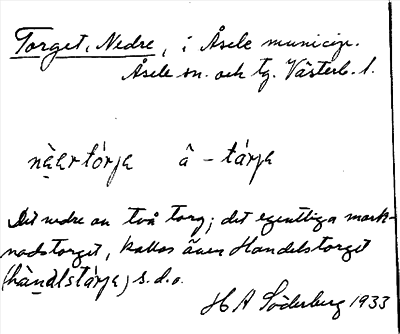 Torget, Nedre, i Åsele municip.
Åsele sn. och tg. Västerb. l.
nèḁrtórja â – tárja
Det nedre av två torg; det egentliga mark-
nadstorget, kallas även Handelstorget
(hàndlstárja) s.d.o.
H A Söderberg 1933